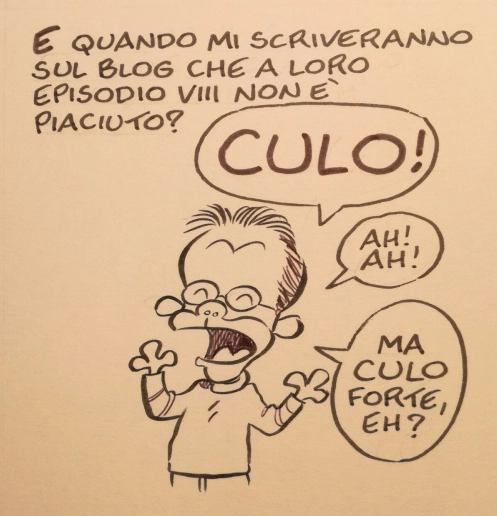 E QUANDO MI SCRIVERANNO
SUL BLOG CHE A LORO
EPISODIO VIII NON È
PIACIUTO?
CULO!
AH!
AH!
MA
CULO
FORTE,
EH?